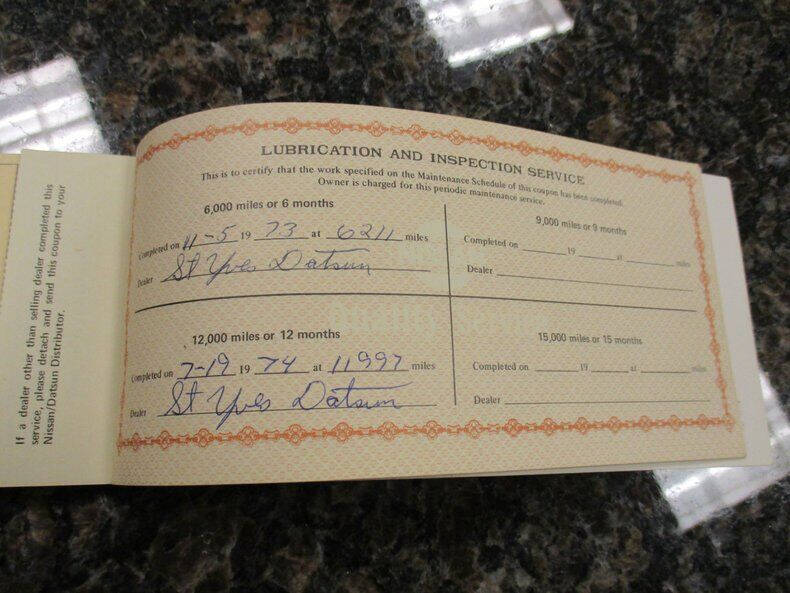 LUBRICATION AND INSPECTION SERVICE
This is to certify that the work specified on the Maintenance Schedule of this coupon has been completed.
Owner is charged for this periodic maintenance service.
6,000 miles or 6 months
Completed on 11-5 19 73 at 6211 miles
Dealer St Yves Datsun
9,000 miles or 9 months
Completed on 19 at miles
Dealer
12,000 miles or 12 months
Completed on 7-19 19 74 at 11997 miles
Dealer St Yves Datsun
15,000 miles or 15 months
Completed on 19 at miles
Dealer
If a dealer other than selling dealer completed this
service, please detach and send this coupon to your
Nissan/Datsun Distributor.